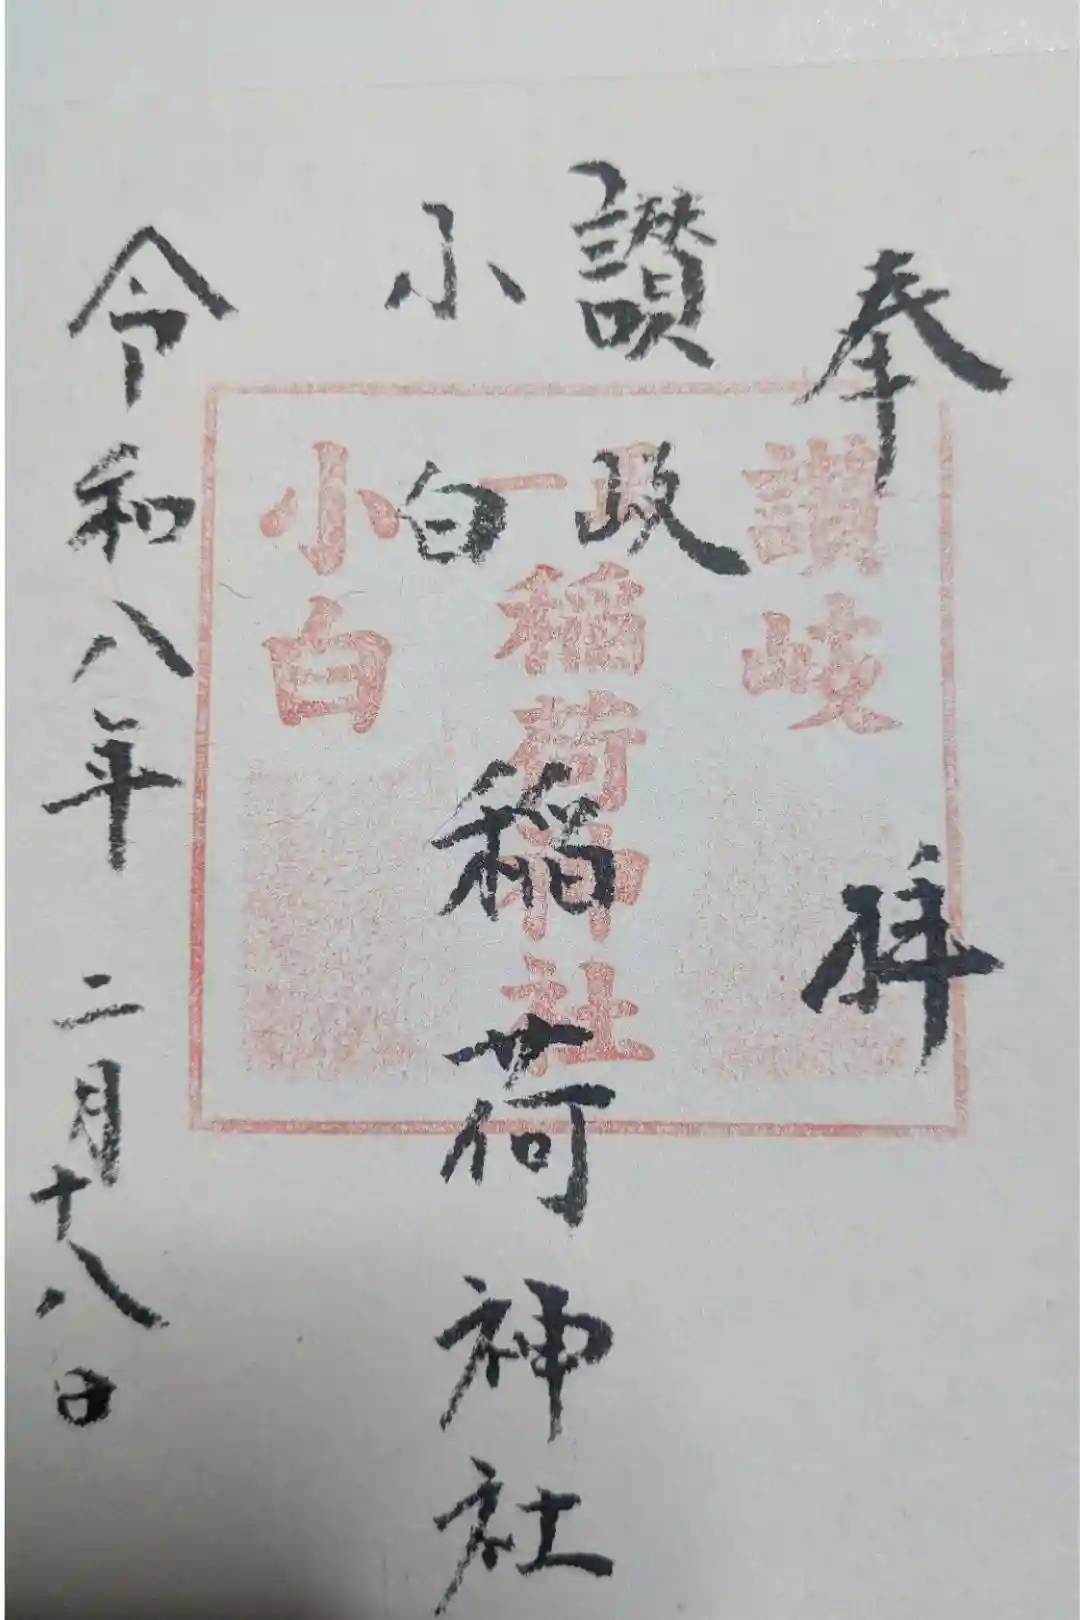 奉拝
讃岐
小白
稲荷神社
令和八年二月十八日
讃岐
正一
稲荷神社
小白